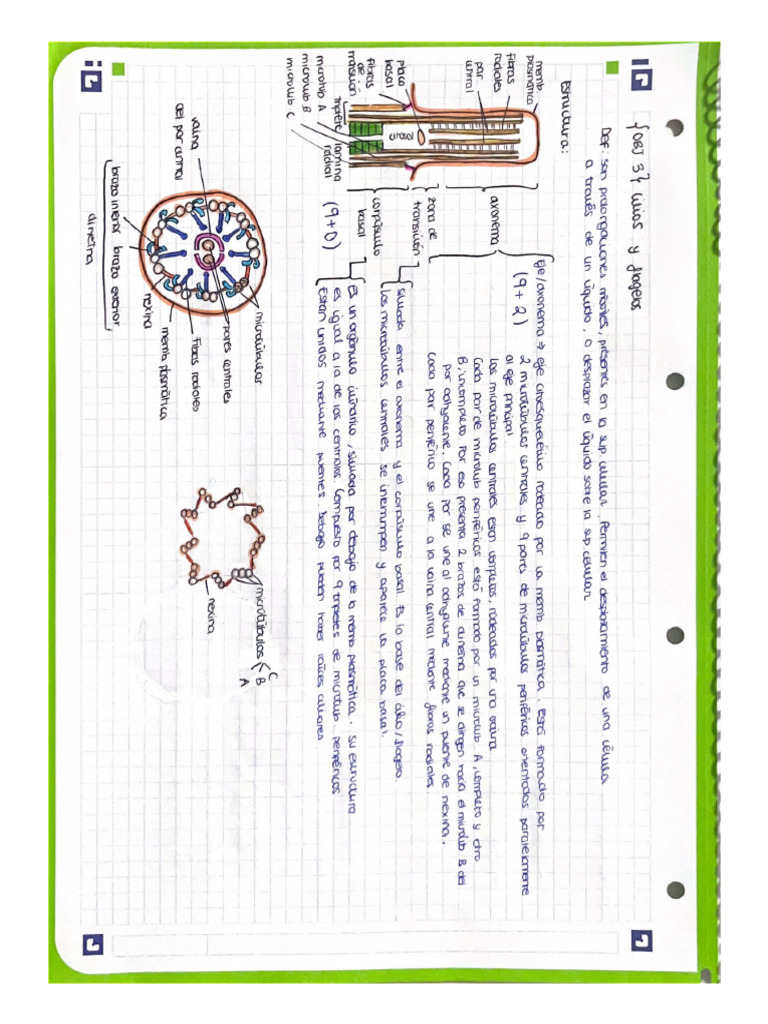 {OBJ 3} Cilios y flagelos
Def: son prolongaciones móviles, presentes en la sup. celular. Permiten el desplazamiento de una célula
a través de un líquido, o desplazar el líquido sobre la sup. celular
Estructura:
memb.
plasmática
fibras
radiales
par
central
placa
basal
fibras
de
transición
microtub A
microtub B
microtub C
citosol
triplete
lámina
radial
axonema
zona de
transición
corpúsculo
basal
(9+0)
Eje/axonema → eje citoesquelético rodeado por la memb plasmática. Está formado por
(9+2)
2 microtúbulos centrales y 9 pares de microtúbulos periféricos orientados paralelamente
al eje principal
Los microtúbulos centrales están completos, rodeados por una vaina
Cada par de microtub periféricos está formado por un microtub A, completo y otro
B, incompleto. Por eso presenta 2 brazos de dineina que se dirigen hacia el microtub B del
par adhyacente. Cada par se une al adhyacente mediante un puente de nexina.
Cada par periférico se une a la vaina central mediante fibras radiales
Situada entre el axonema y el corpúsculo basal. Es la base del cilio/flagelo.
Los microtúbulos centrales se interrumpen y aparece la placa basal.
Es un orgánulo cilíndrico, situado por debajo de la memb plasmática. Su estructura
es igual a la de los centriolos. Compuesto por 9 tripletes de microtub. periféricos
Están unidos mediante puentes. Debajo pueden haber raíces ciliares
vaina
del par central
microtúbulos
pares centrales
fibras radiales
memb. plasmática
nexina
brazo interior brazo exterior
dineina
microtúbulos
C
B
A
nexina